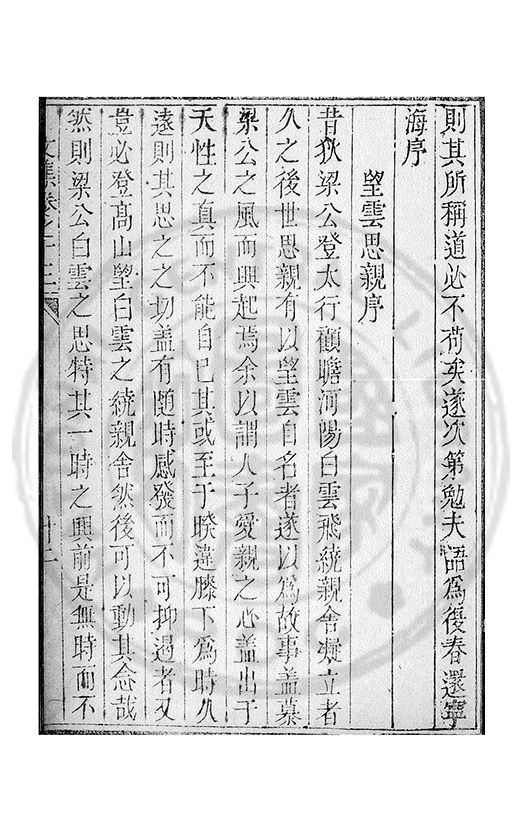 則其所稱道必不苟矣遂次第勉夫語爲後春還寧
海序
望雲思親序
昔狄梁公登太行顧瞻河陽白雲飛繞親舍凝立者
久之後世思親有以望雲自名者遂以爲故事盖慕
梁公之風而興起焉余以謂人子愛親之心盖出于
天性之真而不能自已其或至于暌違膝下爲時久
遠則其思之之切盖有随時感發而不可抑遏者又
豈必登髙山望白雲之繞親舍然後可以動其念哉
然則梁公白雲之思特其一時之興前是無時而不
文集卷之十三
十二